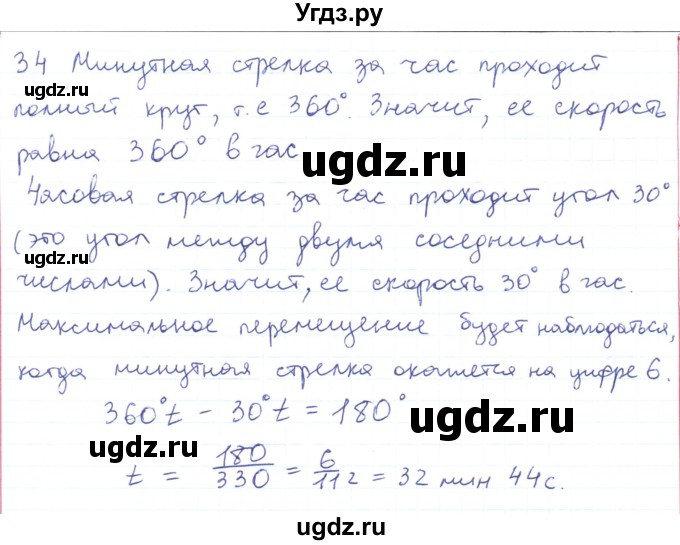 Угдз.ру
34 Минутная стрелка за час проходит
полный круг, т.е 360°. Значит, ее скорость
равна 360° в час
Часовая стрелка за час проходит угол 30°
(это угол между двумя соседними
числами). Значит, ее скорость 30° в час.
Максимальное перемещение будет наблюдаться,
когда минутная стрелка окажется на цифре 6.
360°t - 30°t = 180°
t = 180/330 = 6/11 г = 32 мин 44с.
ugdz.ru
ugdz.ru
ugdz.ru
ugdz.ru
ugdz.ru
ugdz.ru
ugdz.ru
ugdz.ru